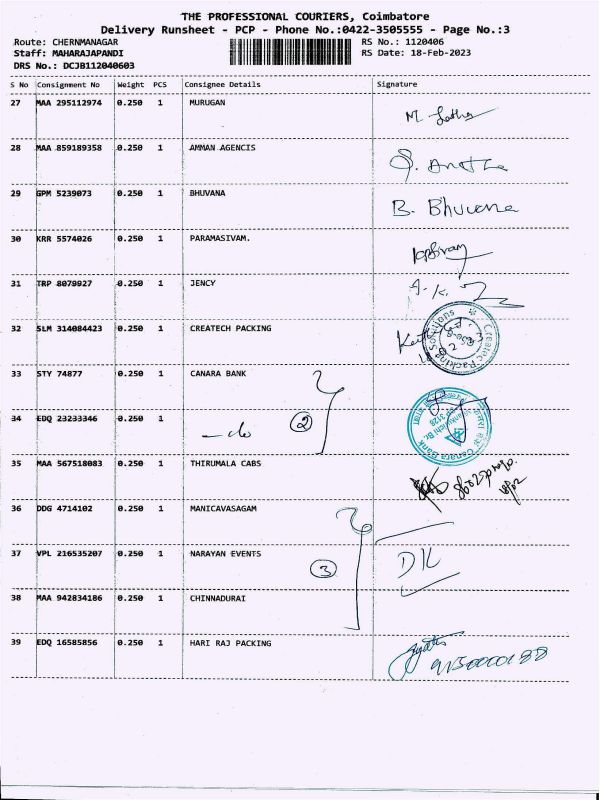 THE PROFESSIONAL COURIERS, Coimbatore
Delivery Runsheet - PCP - Phone No.:0422-3505555 - Page No.:3
Route: CHERNMANAGAR RS No.: 1120406
Staff: MAHARAJAPANDI RS Date: 18-Feb-2023
DRS No.: DCJB112040603
S No Consignment No Weight PCS Consignee Details Signature
27 MAA 295112974 0.250 1 MURUGAN
M. Latha
28 MAA 859189358 0.250 1 AMMAN AGENCIS
29 GPM 5239073 0.250 1 BHUVANA
B. Bhuvana
30 KRR 5574026 0.250 1 PARAMASIVAM.
31 TRP 8079927 0.250 1 JENCY
32 SLM 314084423 0.250 1 CREATECH PACKING
Createc Packing Solutions
33 STY 74877 0.250 1 CANARA BANK
34 EDQ 23233346 0.250 1
- do 2
Canara Bank
35 MAA 567518083 0.250 1 THIRUMALA CABS
36 DDG 4714102 0.250 1 MANICAVASAGAM
37 VPL 216535207 0.250 1 NARAYAN EVENTS
3
38 MAA 942834186 0.250 1 CHINNADURAI
39 EDQ 16585856 0.250 1 HARI RAJ PACKING